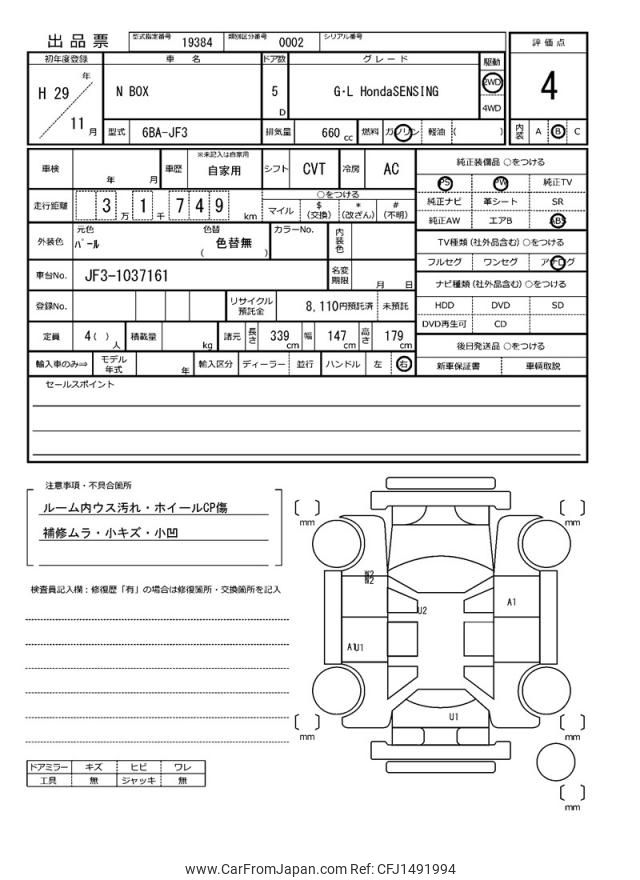 出品票 型式指定番号 19384 類別区分番号 0002 シリアル番号
評価点
4
初年度登録 車名 ドア数 グレード 駆動
H 29 年 11 月 N BOX 5 D G・L HondaSENSING 2WD
4WD
型式 6BA-JF3 排気量 660 cc 燃料 ガソリン 軽油 ( ) 内装 A B C
車検 年 月 車歴 ※未記入は自家用 自家用 シフト CVT 冷房 AC
走行距離 3 万 1 千 7 4 9 km ○をつける
マイル $ (交換) * (改ざん) # (不明)
外装色 元色 パール 色替 色替無 ( ) カラーNo. 内装色
車台No. JF3-1037161 名変期限 月 日
登録No. リサイクル預託金 8,110円預託済 未預託
定員 4( ) 人 積載量 kg 諸元 長さ 339 cm 幅 147 cm 高さ 179 cm
輸入車のみ⇒ モデル年式 年 輸入区分 ディーラー 並行 ハンドル 左 右
純正装備品 ○をつける
PS PW 純正TV
純正ナビ 革シート SR
純正AW エアB ABS
TV種類 (社外品含む) ○をつける
フルセグ ワンセグ アナログ
ナビ種類 (社外品含む) ○をつける
HDD DVD SD
DVD再生可 CD
後日発送品 ○をつける
新車保証書 車輌取説
セールスポイント
注意事項・不具合箇所
ルーム内ウス汚れ・ホイールCP傷
補修ムラ・小キズ・小凹
検査員記入欄：修復歴「有」の場合は修復箇所・交換箇所を記入
ドアミラー キズ ヒビ ワレ
工具 無 ジャッキ 無
mm
mm
W2
W2
U2
A1
A1U1
U1
mm
mm
mm
www.CarFromJapan.com Ref: CFJ1491994